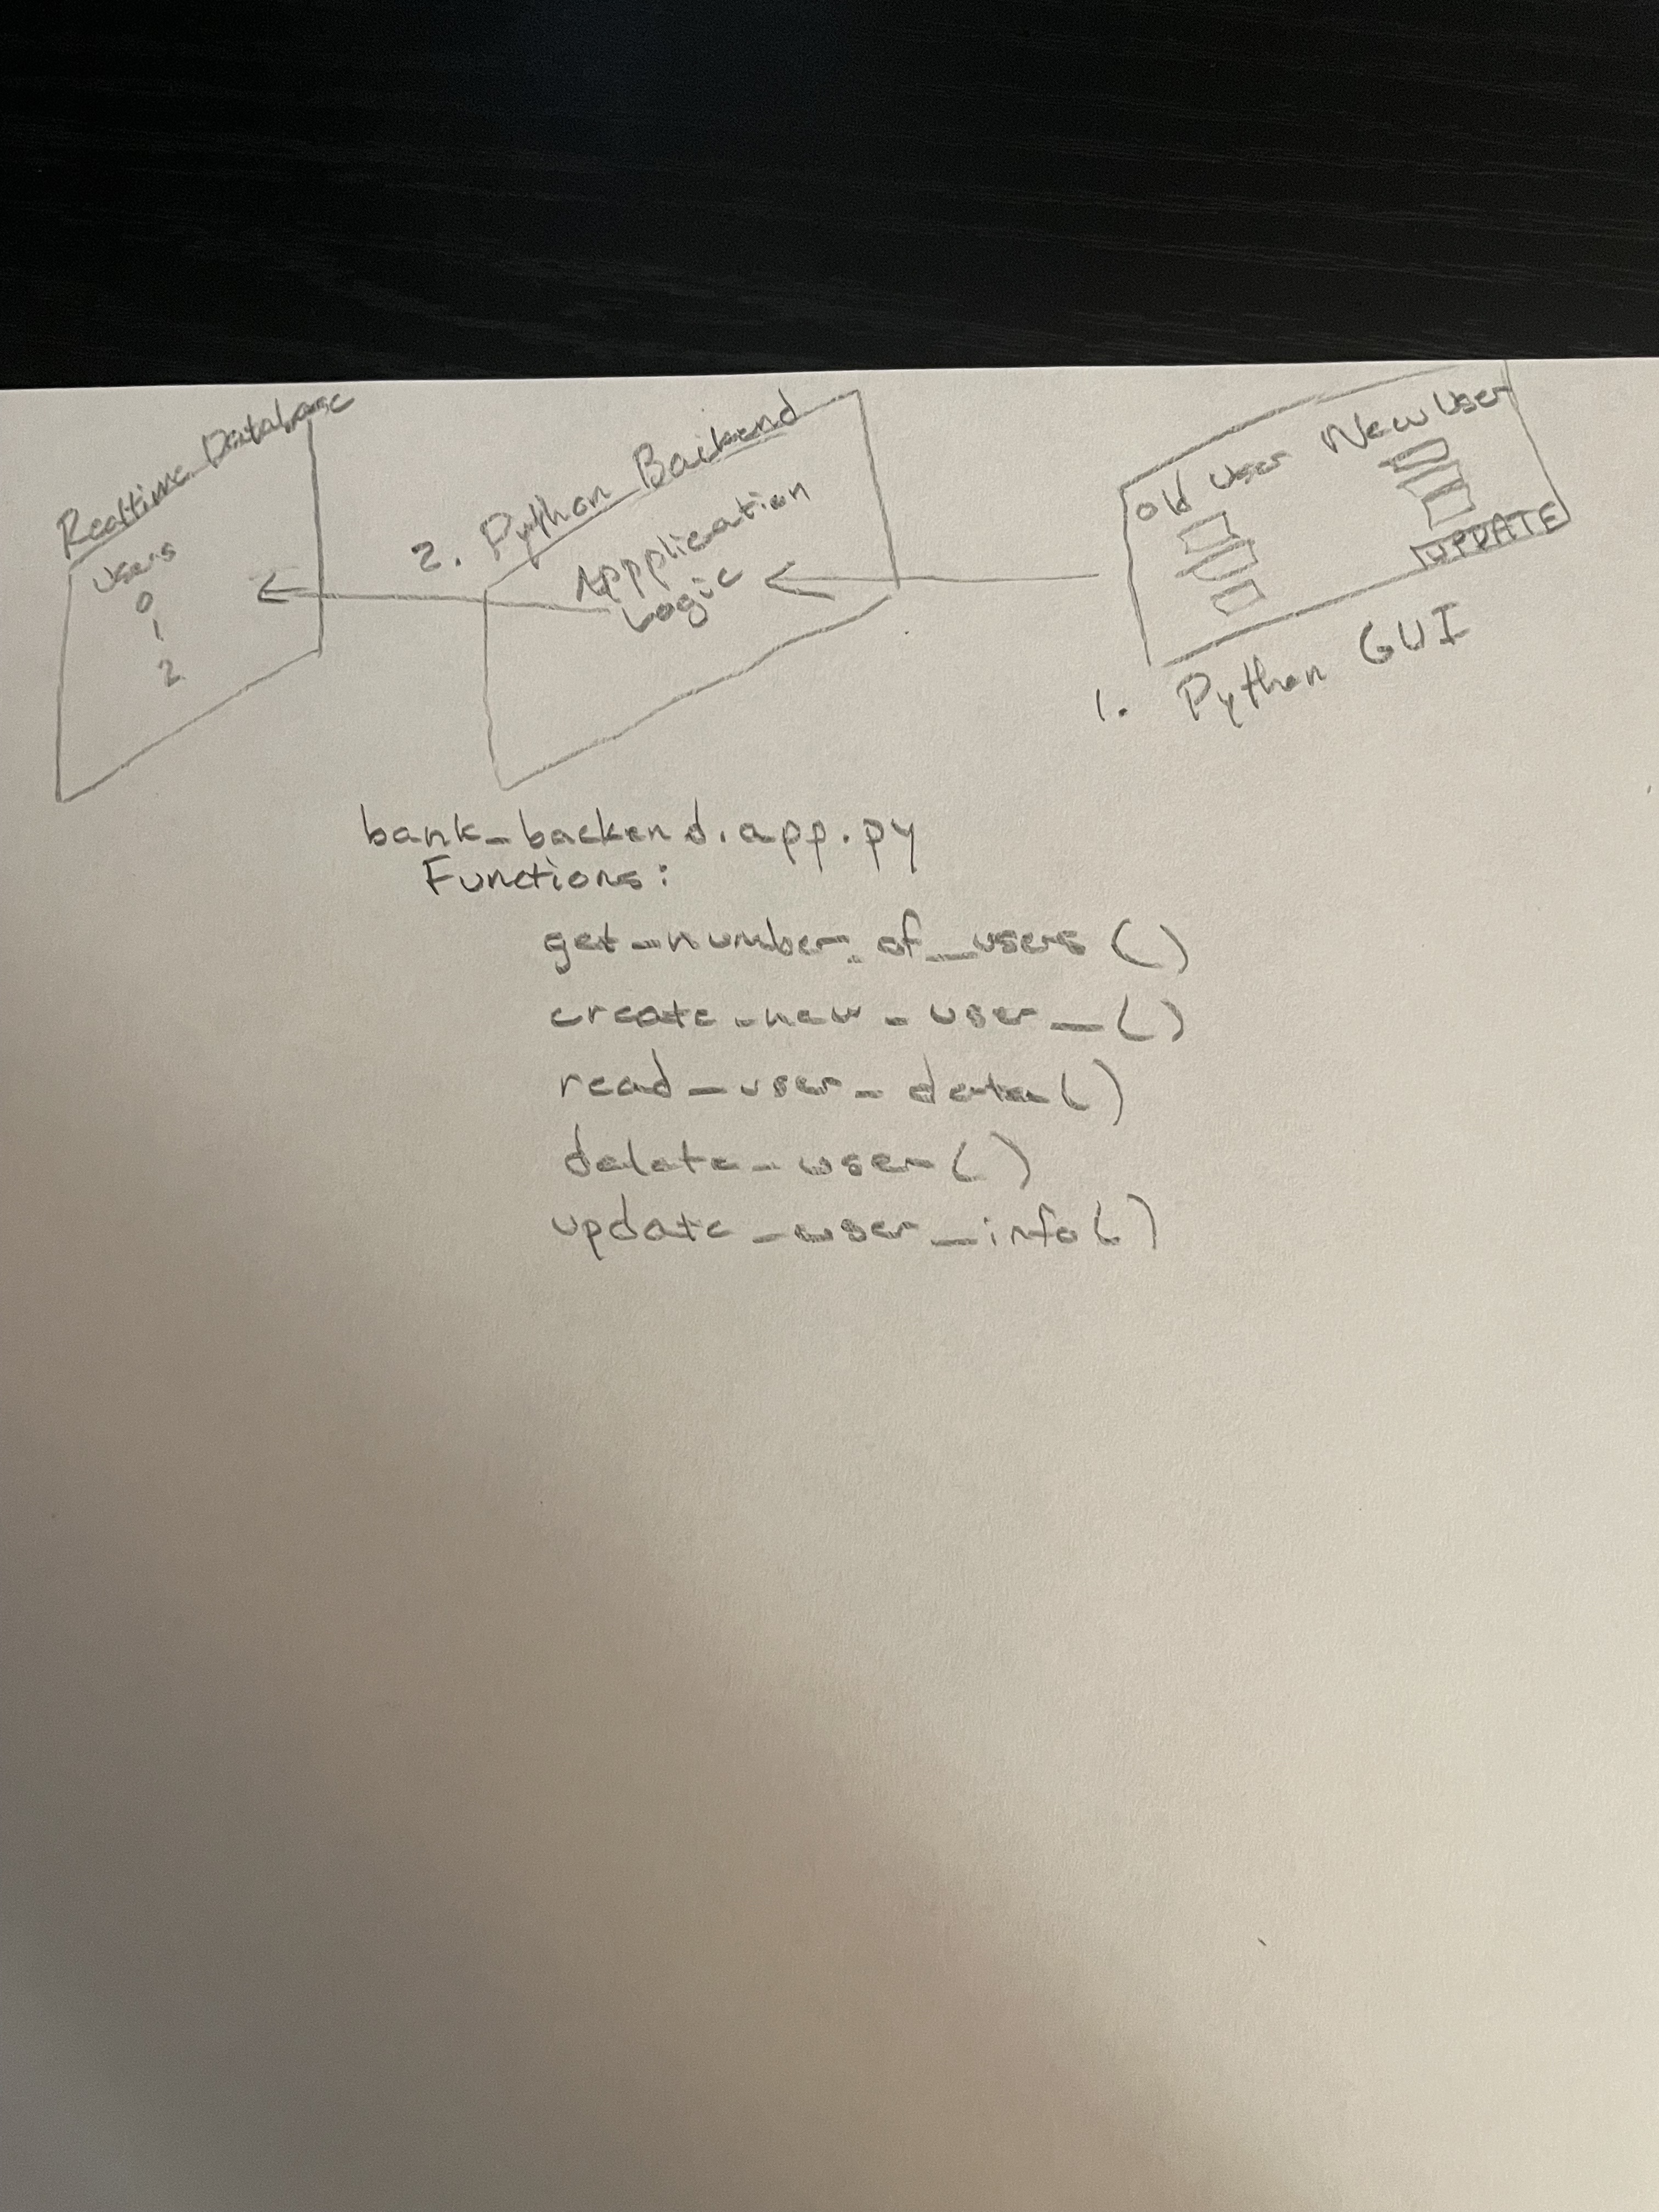 Realtime Database
Users
0
1
2
2. Python Backend
Appplication
Logic
Old User
New User
UPDATE
1. Python GUI
bank_backend.app.py
Functions:
get_number_of_users()
create_new_user_()
read_user_data()
delete_user()
update_user_info()